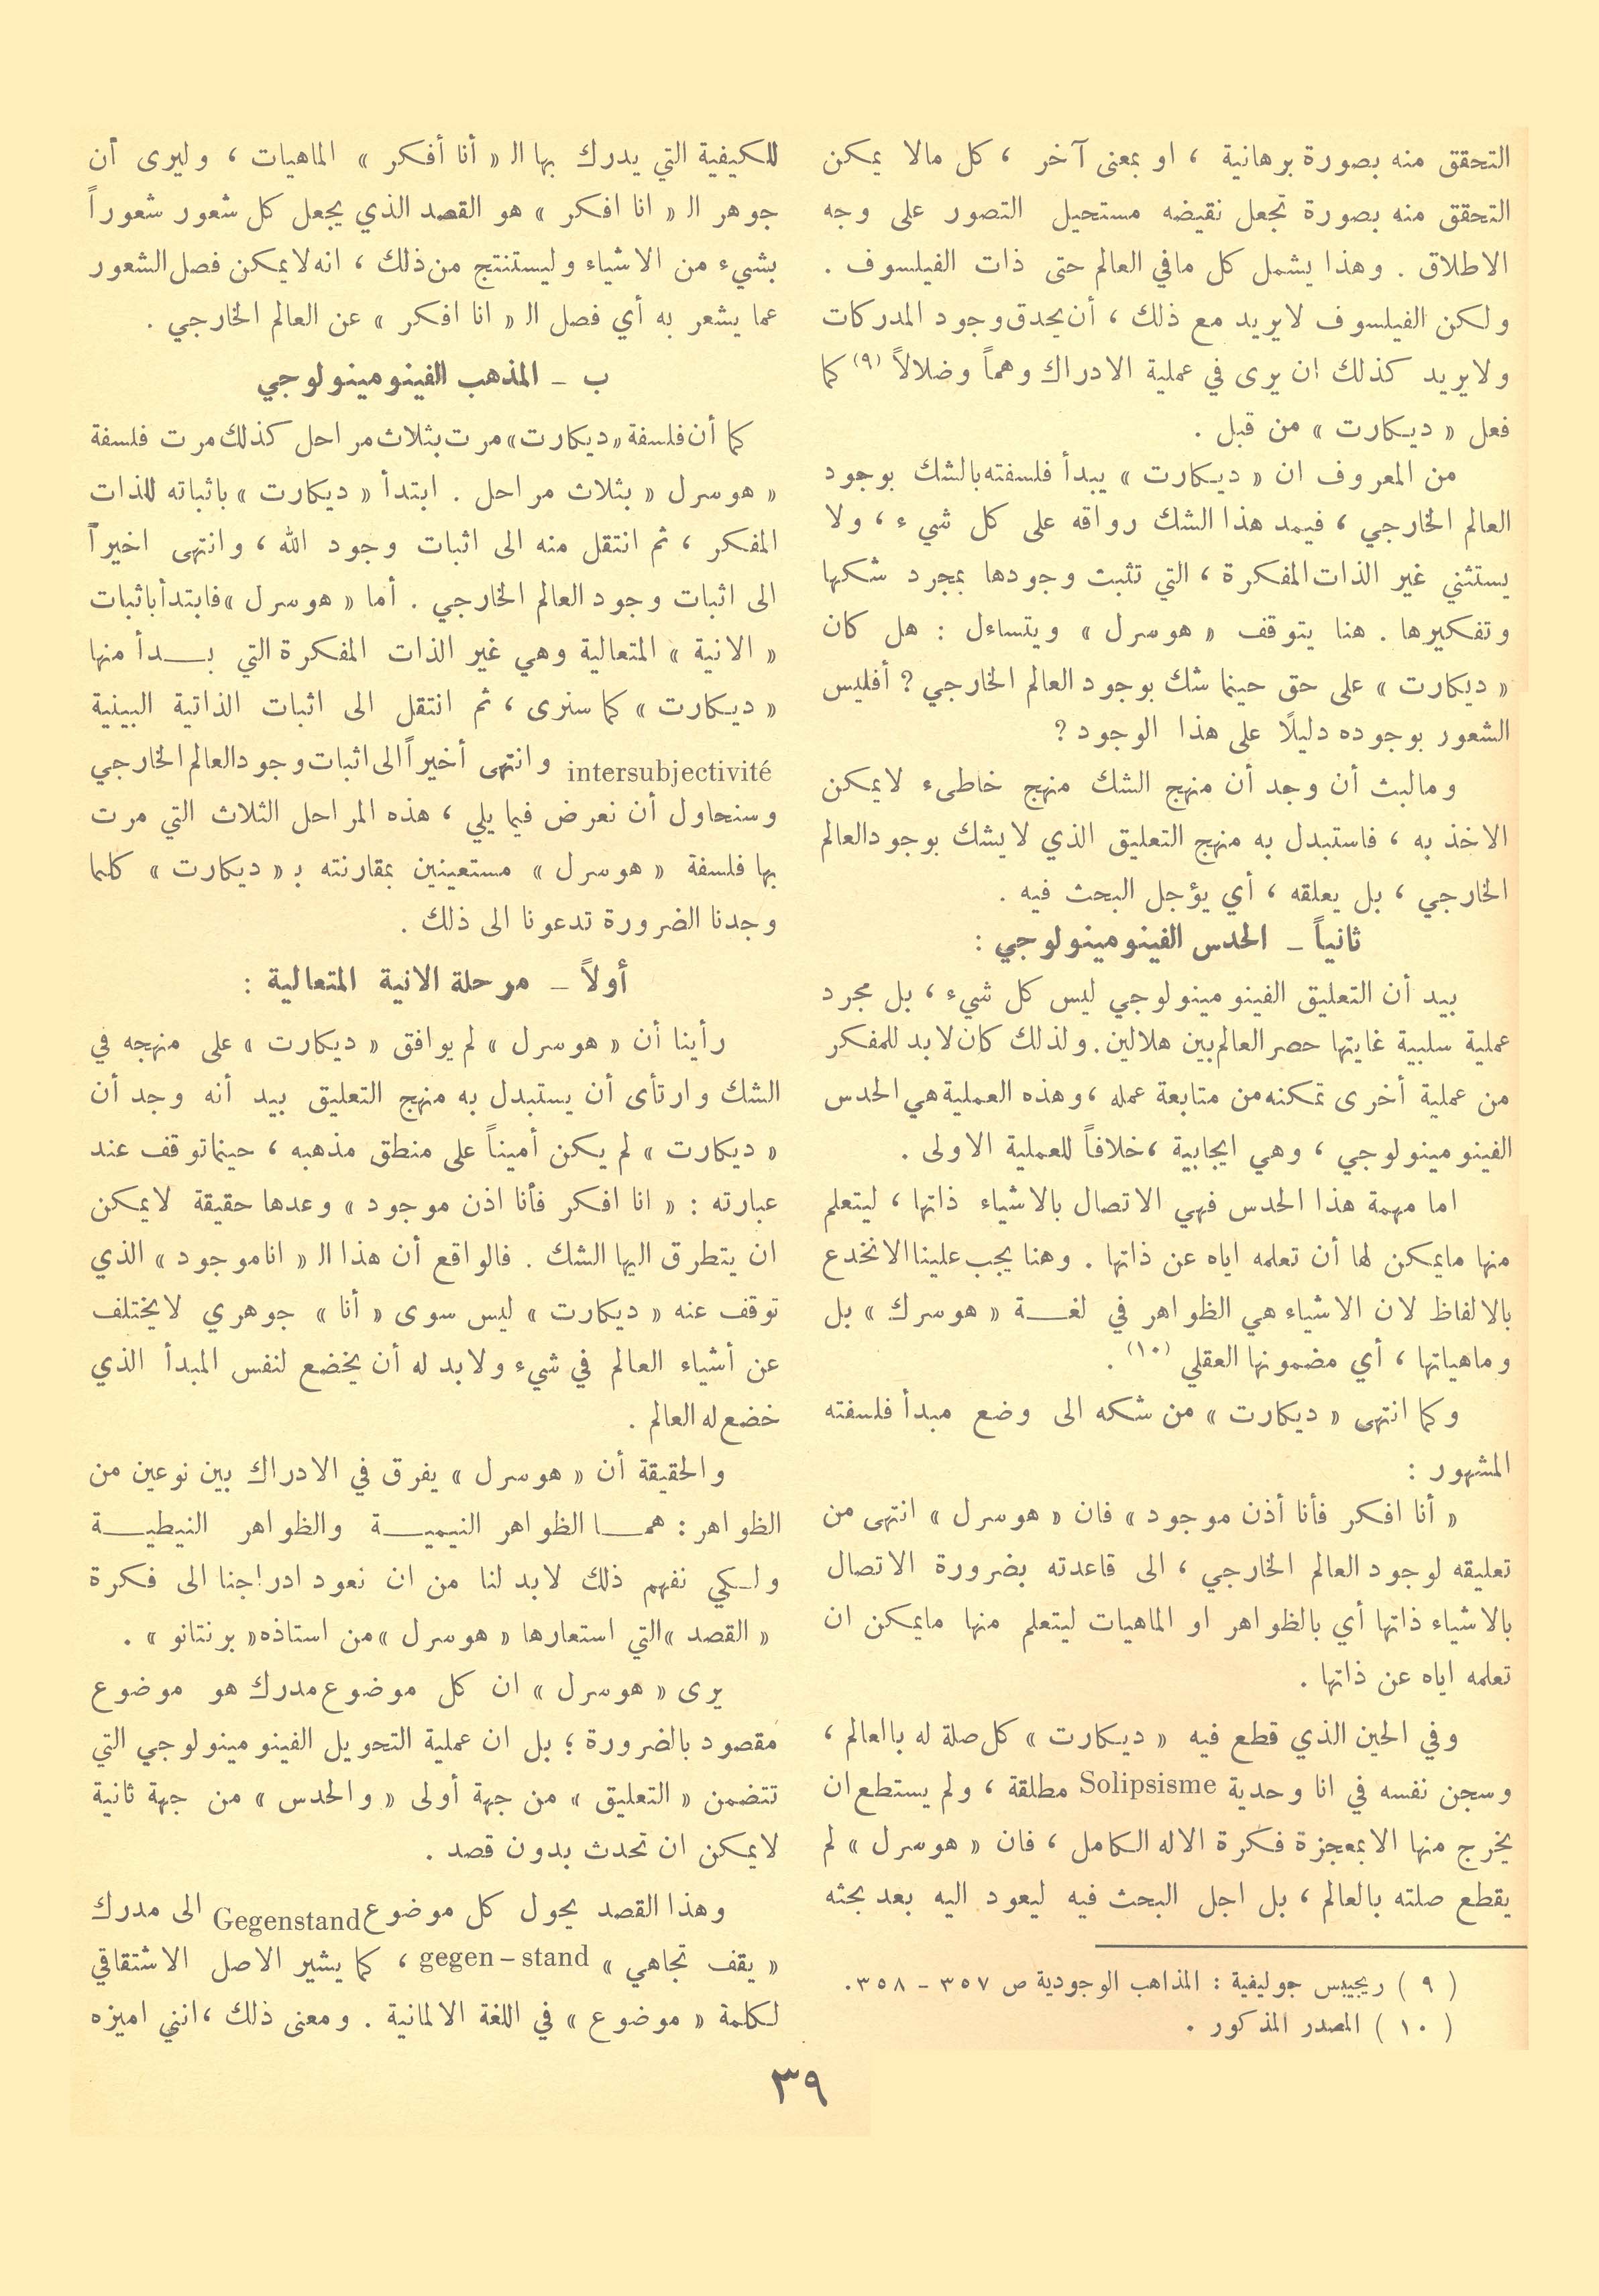 التحقق منه بصورة برهانية ، او بمعنى آخر ، كل مالا يمكن
التحقق منه بصورة تجعل نقيضه مستحيل التصور على وجه
الاطلاق . وهذا يشمل كل مافي العالم حتى ذات الفيلسوف .
ولكن الفيلسوف لايريد مع ذلك ، أن يحدق وجود المدركات
ولايريد كذلك ان يرى في عملية الادراك وهماً وضلالاً (٩) كما
فعل « ديكارت » من قبل .
من المعروف ان « ديكارت » يبدأ فلسفته بالشك بوجود
العالم الخارجي ، فيمد هذا الشك رواقه على كل شيء ، ولا
يستثني غير الذات المفكرة ، التي تثبت وجودها بمجرد شكها
وتفكيرها . هنا يتوقف « هوسرل » ويتساءل : هل كان
« ديكارت » على حق حينما شك بوجود العالم الخارجي ? أفليس
الشعور بوجوده دليلًا على هذا الوجود ?
ومالبث أن وجد أن منهج الشك منهج خاطىء لايمكن
الاخذ به ، فاستبدل به منهج التعليق الذي لايشك بوجود العالم
الخارجي ، بل يعلقه ، أي يؤجل البحث فيه .
ثانياً – الحدس الفينومينولوجي :
بيد أن التعليق الفينومينولوجي ليس كل شيء ، بل مجرد
عملية سلبية غايتها حصر العالم بين هلالين . ولذلك كان لابد للمفكر
من عملية أخرى تمكنه من متابعة عمله ، وهذه العملية هي الحدس
الفينومينولوجي ، وهي ايجابية ، خلافاً للعملية الاولى .
اما مهمة هذا الحدس فهي الاتصال بالاشياء ذاتها ، ليتعلم
منها مايمكن لها أن تعلمه اياه عن ذاتها . وهنا يجب علينا الانخدع
بالالفاظ لان الاشياء هي الظواهر في لغة « هوسرك » بل
وماهياتها ، أي مضمونها العقلي (١٠) .
وكما انتهى « ديكارت » من شكه الى وضع مبدأ فلسفته
المشهور :
« أنا افكر فأنا أذن موجود » فان « هوسرل » انتهى من
تعليقه لوجود العالم الخارجي ، الى قاعدته بضرورة الاتصال
بالاشياء ذاتها أي بالظواهر او الماهيات ليتعلم منها مايمكن ان
تعلمه اياه عن ذاتها .
وفي الحين الذي قطع فيه « ديكارت » كل صلة له بالعالم ،
وسجن نفسه في انا وحدية Solipsisme مطلقة ، ولم يستطع ان
يخرج منها الا بمعجزة فكرة الاله الكامل ، فان « هوسرل » لم
يقطع صلته بالعالم ، بل اجل البحث فيه ليعود اليه بعد بحثه
( ٩ ) ريجيبس جوليفية : المذاهب الوجودية ص ٣٥٧ – ٣٥٨.
( ١٠ ) المصدر المذكور .
للكيفية التي يدرك بها الـ « أنا أفكر » الماهيات ، وليرى أن
جوهر الـ « انا افكر » هو القصد الذي يجعل كل شعور شعوراً
بشيء من الاشياء وليستنتج من ذلك ، انه لايمكن فصل الشعور
عما يشعر به أي فصل الـ « انا افكر » عن العالم الخارجي .
ب – المذهب الفينومينولوجي
كما أن فلسفة « ديكارت » مرت بثلاث مراحل كذلك مرت فلسفة
« هوسرل « بثلاث مراحل . ابتدأ « ديكارت » باثباته للذات
المفكر ، ثم انتقل منه الى اثبات وجود الله ، وانتهى اخيراً
الى اثبات وجود العالم الخارجي . أما « هوسرل » فابتدأ باثبات
« الانية » المتعالية وهي غير الذات المفكرة التي بدأ منها
« ديكارت » كما سنرى ، ثم انتقل الى اثبات الذاتية البينية
intersubjectivité وانتهى أخيراً الى اثبات وجود العالم الخارجي
وسنحاول أن نعرض فيما يلي ، هذه المراحل الثلاث التي مرت
بها فلسفة « هوسرل » مستعينين بمقارنته بـ « ديكارت » كلما
وجدنا الضرورة تدعونا الى ذلك .
أولاً – مرحلة الانية المتعالية :
رأينا أن « هوسرل » لم يوافق « ديكارت » على منهجه في
الشك وارتأى أن يستبدل به منهج التعليق بيد أنه وجد أن
« ديكارت » لم يكن أميناً على منطق مذهبه ، حينما توقف عند
عبارته : « انا افكر فأنا اذن موجود » وعدها حقيقة لايمكن
ان يتطرق اليها الشك . فالواقع أن هذا الـ « انا موجود » الذي
توقف عنه « ديكارت » ليس سوى « أنا » جوهري لايختلف
عن أشياء العالم في شيء ولابد له أن يخضع لنفس المبدأ الذي
خضع له العالم .
والحقيقة أن « هوسرل » يفرق في الادراك بين نوعين من
الظواهر : هما الظواهر النيمية والظواهر النيطية
ولكي نفهم ذلك لابد لنا من ان نعود ادراجنا الى فكرة
« القصد » التي استعارها « هوسرل » من استاذه « برنتانو » .
يرى « هوسرل » ان كل موضوع مدرك هو موضوع
مقصود بالضرورة ؛ بل ان عملية التحويل الفينومينولوجي التي
تتضمن « التعليق » من جهة أولى « والحدس » من جهة ثانية
لايمكن ان تحدث بدون قصد .
وهذا القصد يحول كل موضوع Gegenstand الى مدرك
« يقف تجاهي » gegen–stand ، كما يشير الاصل الاشتقاقي
لكلمة « موضوع » في اللغة الالمانية . ومعنى ذلك ، انني اميزه
٣٩